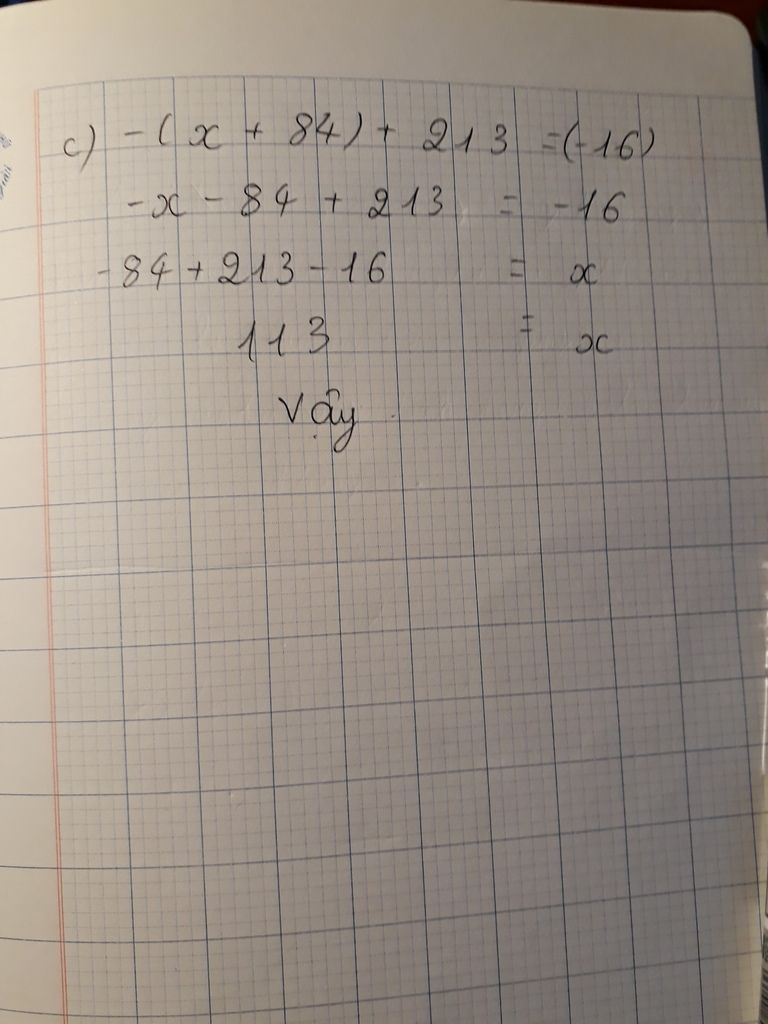 c) -(x + 84) + 213 = (-16)
-x - 84 + 213 = -16
-84 + 213 - 16 = x
113 = x
Vậy